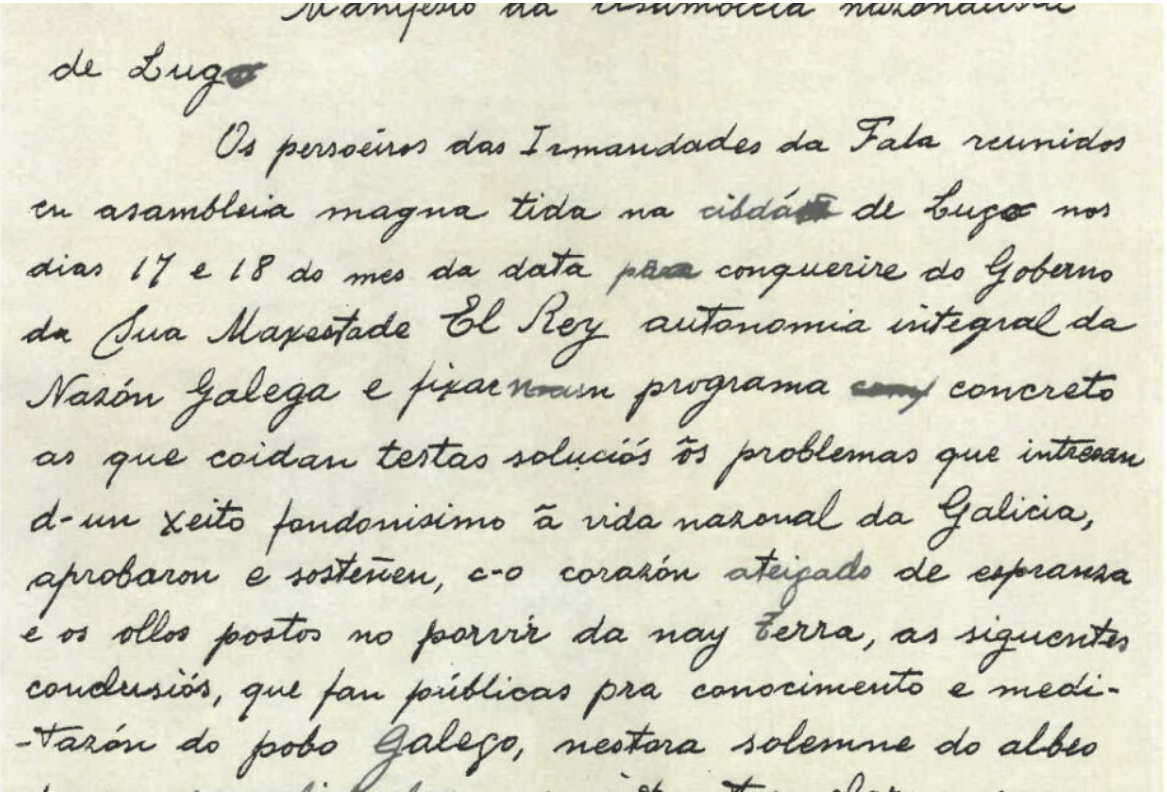 Manifesto da Asamblea nazonalista
de Lugo
Os persoeiros das Irmandades da Fala reunidos
en asambleia magna tida na cibdá de Lugo nos
dias 17 e 18 do mes da data pra conquerire do Goberno
da Sua Maxestade El Rey autonomia integral da
Nazón Galega e fixar n-un programa concreto
as que coidan testas soluciós õs problemas que intresan
d-un xeito fondonisimo ã vida nazonal da Galicia,
aprobaron e sosteñen, c-o corazón ateigado de espranza
e os ollos postos no porvir da nay Terra, as siguentes
conclusiós, que fan públicas pra conocimento e medi-
-tazón do pobo Galego, nestora solemne do albeo